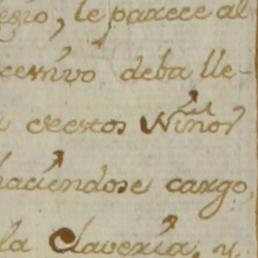 esio, le parece al
cesivo deba lle-
a o estos Niños
haciendose cargo,
la Claveria, y